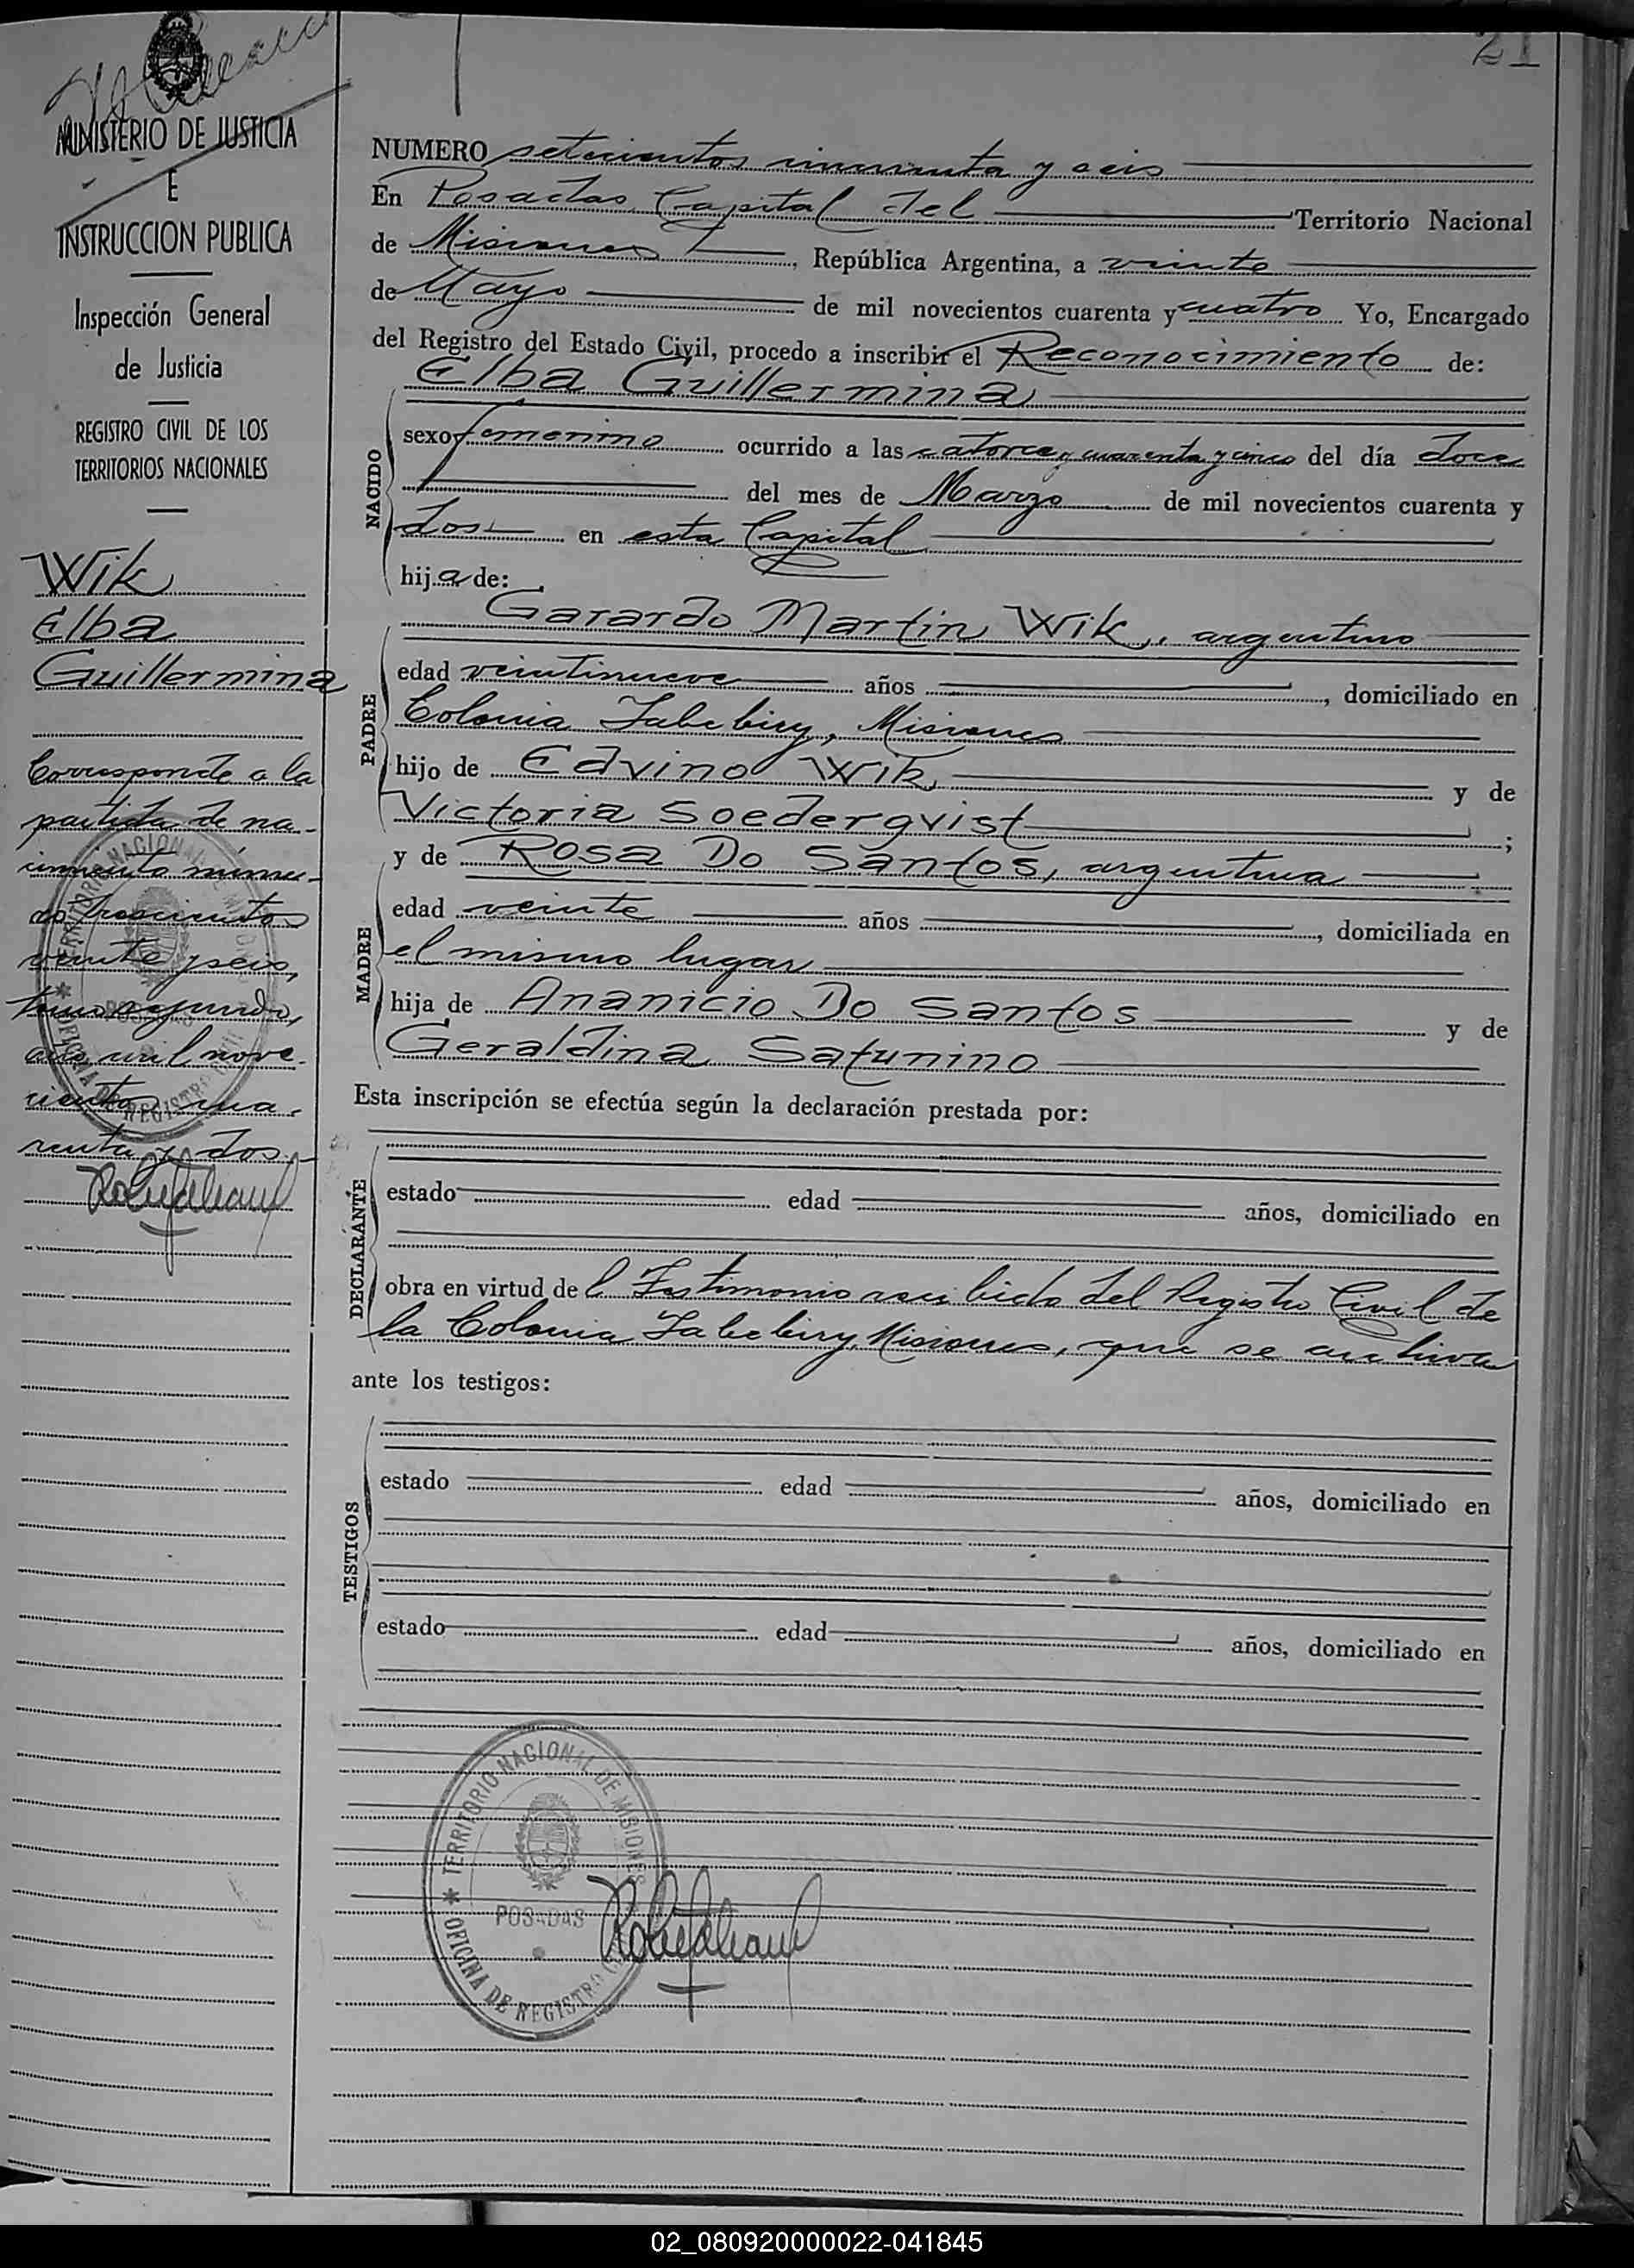 21
MINISTERIO DE JUSTICIA
E
INSTRUCCION PUBLICA
Inspección General
de Justicia
REGISTRO CIVIL DE LOS
TERRITORIOS NACIONALES
Wik
Elba
Guillermina
Corresponde a la
partida de na-
cimiento núme-
ro trescientos
veinte y seis,
tomo segundo,
año mil nove-
cientos cua-
renta y dos.-
NUMERO setecientos cincuenta y seis
En Posadas Capital del Territorio Nacional
de Misiones, República Argentina, a veinte
de Mayo de mil novecientos cuarenta y cuatro Yo, Encargado
del Registro del Estado Civil, procedo a inscribir el Reconocimiento de:
Elba Guillermina
NACIDO
sexo femenino ocurrido a las catorce y cuarenta y cinco del día doce
del mes de Marzo de mil novecientos cuarenta y
dos en esta Capital
hija de:
PADRE
Garardo Martin Wik, argentino
edad veintinueve años, domiciliado en
Colonia Yabebiry, Misiones
hijo de Edvino Wik, y de
Victoria Soederqvist;
MADRE
y de Rosa Do Santos, argentina
edad veinte años, domiciliada en
el mismo lugar
hija de Ananicio Do Santos y de
Geraldina Satunino
Esta inscripción se efectúa según la declaración prestada por:
DECLARANTE
estado edad años, domiciliado en
obra en virtud del Testimonio recibido del Registro Civil de
la Colonia Yabebiry, Misiones, que se archiva
ante los testigos:
TESTIGOS
estado edad años, domiciliado en
estado edad años, domiciliado en
TERRITORIO NACIONAL DE MISIONES
POSADAS
OFICINA DE REGISTRO
02_080920000022-041845